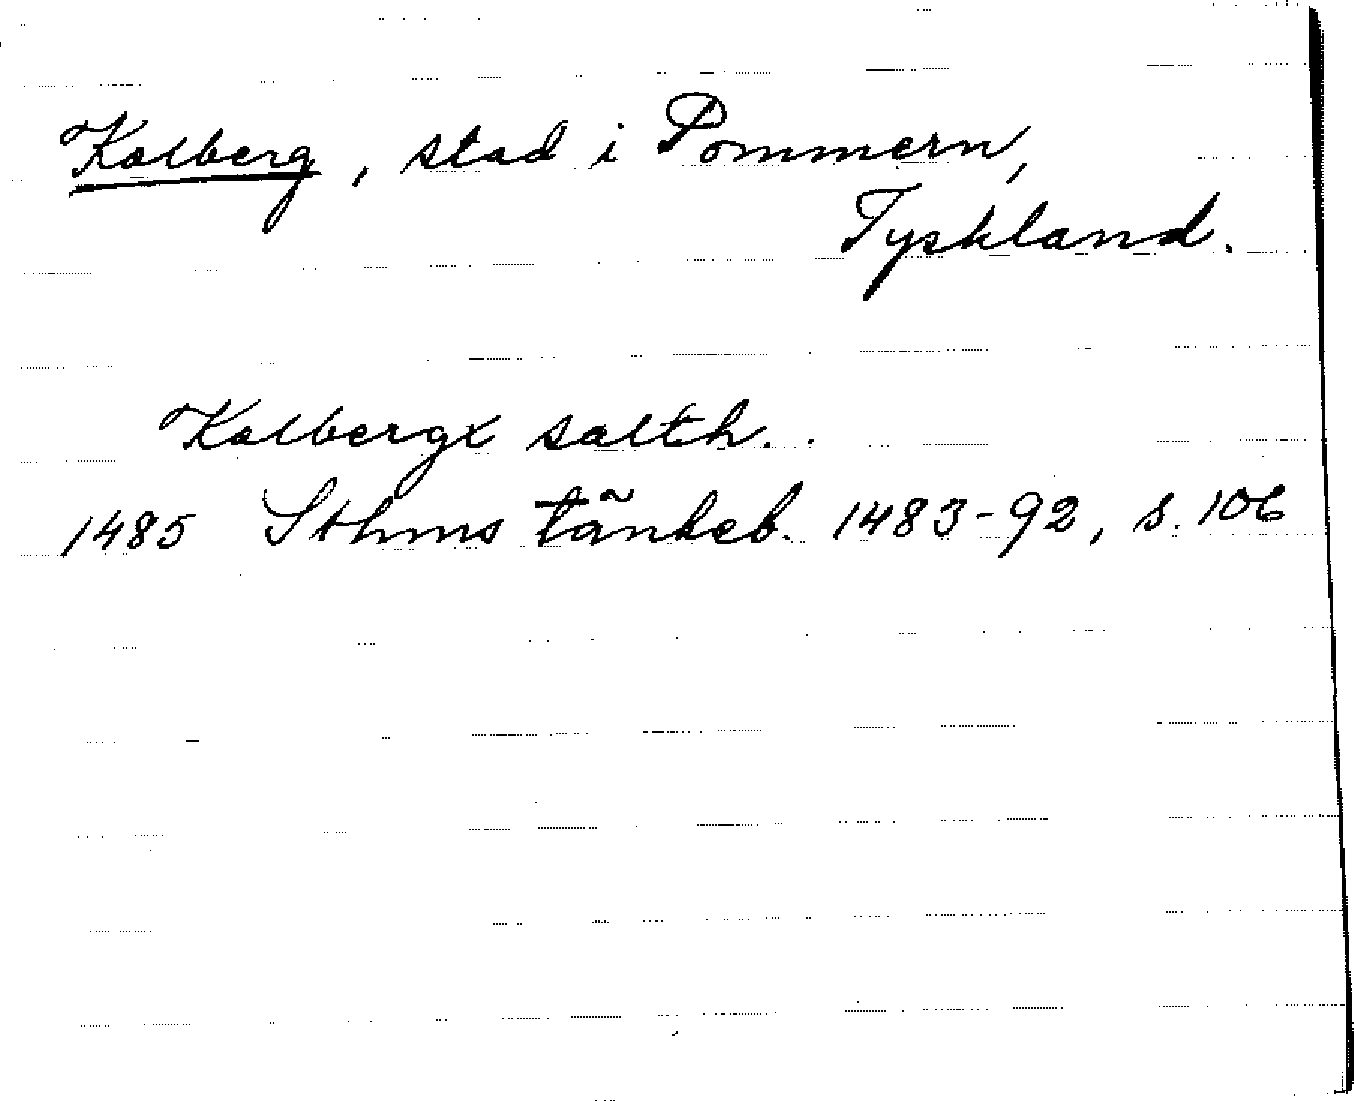 Kolberg, stad i Pommern,
Tyskland.
Kolbergx salth..
1485 Sthms tänkeb. 1483-92, s. 106